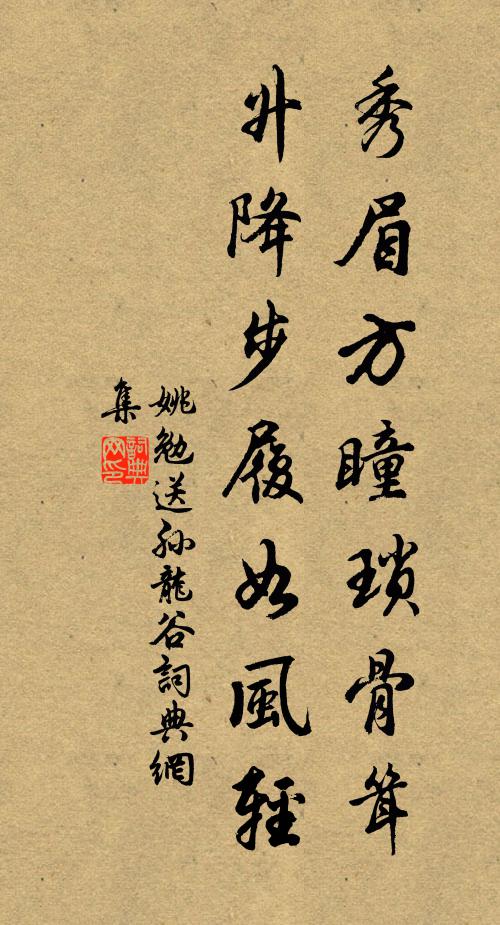 秀眉方瞳瑣骨聳
升降步履如風輕
姚勉送孫龍谷詞典網
集
詞典
网印